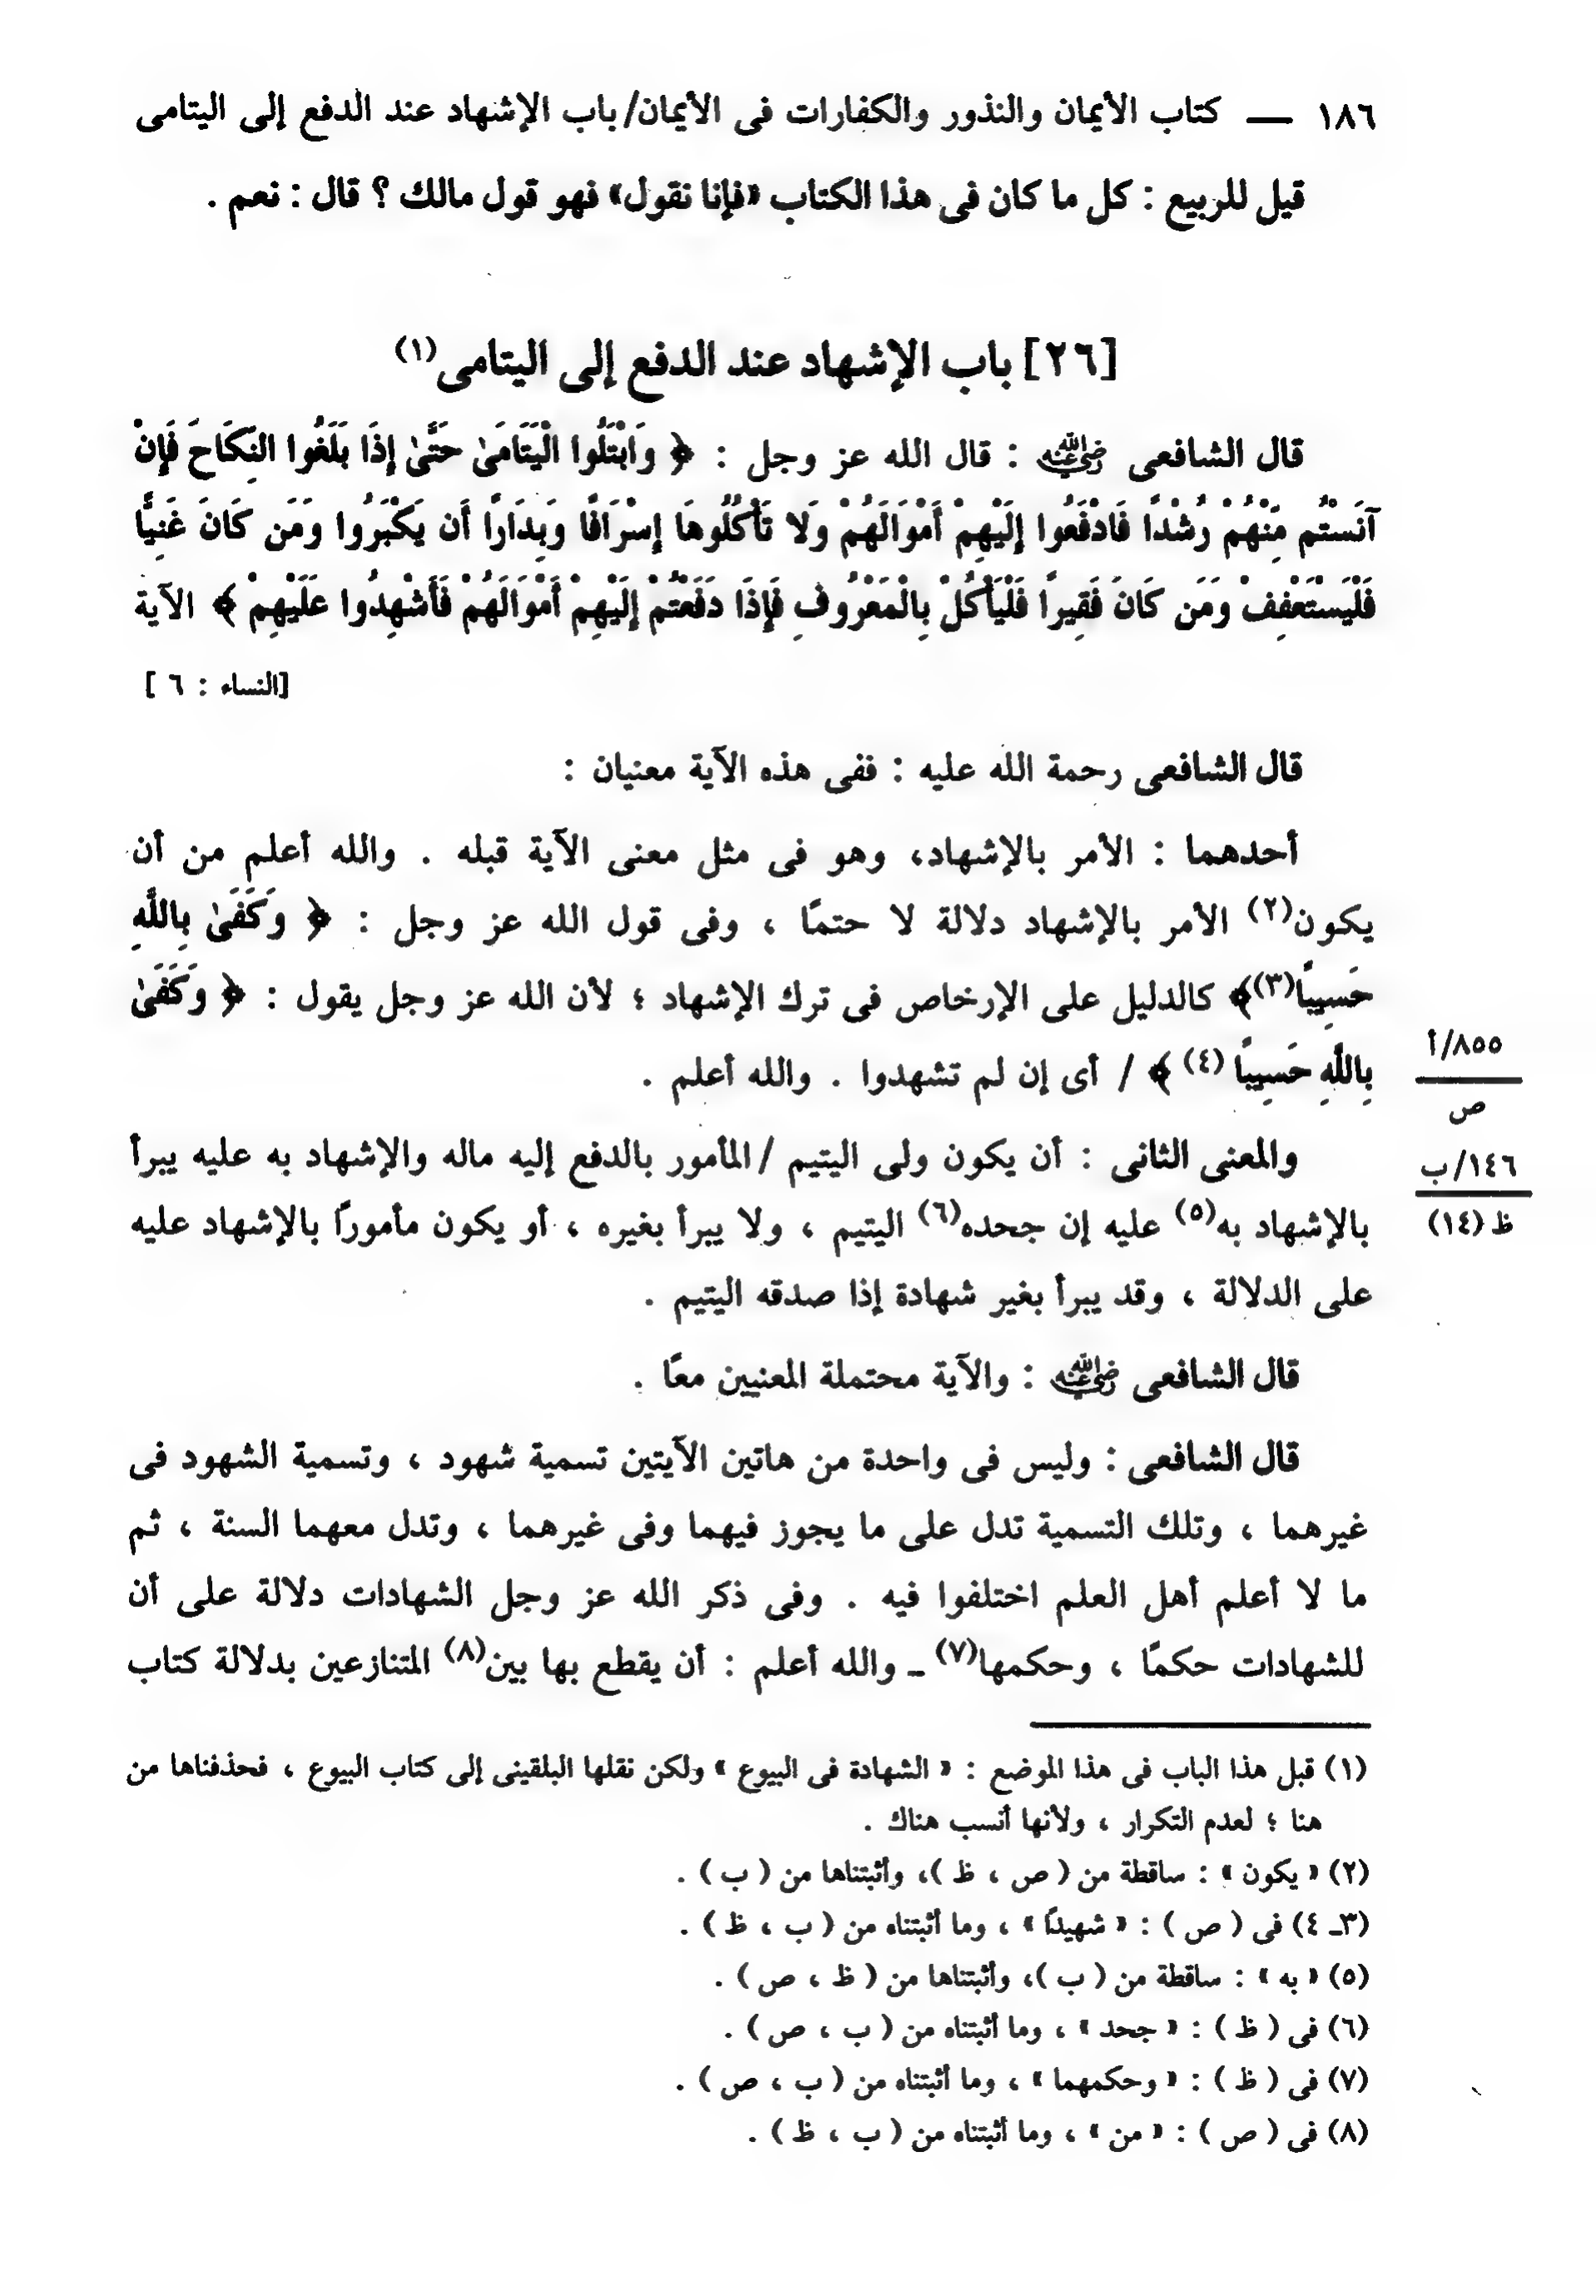 ١٨٦ ـــ كتاب الأيمان والنذور والكفارات فى الأيمان/ باب الإشهاد عند الدفع إلى اليتامى
قيل للربيع : كل ما كان فى هذا الكتاب «فإنا نقول» فهو قول مالك ؟ قال : نعم .
[٢٦] باب الإشهاد عند الدفع إلى اليتامى(١)
قال الشافعى رضي الله عنه : قال الله عز وجل : ﴿ وَابْتَلُوا الْيَتَامَىٰ حَتَّىٰ إِذَا بَلَغُوا النِّكَاحَ فَإِنْ
آنَسْتُم مِّنْهُمْ رُشْدًا فَادْفَعُوا إِلَيْهِمْ أَمْوَالَهُمْ وَلا تَأْكُلُوهَا إِسْرَافًا وَبِدَارًا أَن يَكْبَرُوا وَمَن كَانَ غَنِيًّا
فَلْيَسْتَعْفِفْ وَمَن كَانَ فَقِيرًا فَلْيَأْكُلْ بِالْمَعْرُوفِ فَإِذَا دَفَعْتُمْ إِلَيْهِمْ أَمْوَالَهُمْ فَأَشْهِدُوا عَلَيْهِمْ ﴾ الآية
[النساء : ٦ ]
قال الشافعى رحمة الله عليه : ففى هذه الآية معنيان :
أحدهما : الأمر بالإشهاد، وهو فى مثل معنى الآية قبله . والله أعلم من أن
يكون(٢) الأمر بالإشهاد دلالة لا حتمًا ، وفى قول الله عز وجل : ﴿ وَكَفَىٰ بِاللَّهِ
حَسِيبًا(٣)﴾ كالدليل على الإرخاص فى ترك الإشهاد ؛ لأن الله عز وجل يقول : ﴿ وَكَفَىٰ
بِاللَّهِ حَسِيبًا (٤) ﴾ / أى إن لم تشهدوا . والله أعلم .
٨٥٥/أ
ص
والمعنى الثانى : أن يكون ولى اليتيم /المأمور بالدفع إليه ماله والإشهاد به عليه يبرأ
١٤٦/ب
ظ (١٤)
بالإشهاد به(٥) عليه إن جحده(٦) اليتيم ، ولا يبرأ بغيره ، أو يكون مأمورًا بالإشهاد عليه
على الدلالة ، وقد يبرأ بغير شهادة إذا صدقه اليتيم .
قال الشافعى رضي الله عنه : والآية محتملة المعنيين معًا .
قال الشافعى : وليس فى واحدة من هاتين الآيتين تسمية شهود ، وتسمية الشهود فى
غيرهما ، وتلك التسمية تدل على ما يجوز فيهما وفى غيرهما ، وتدل معهما السنة ، ثم
ما لا أعلم أهل العلم اختلفوا فيه . وفى ذكر الله عز وجل الشهادات دلالة على أن
للشهادات حكمًا ، وحكمها(٧) ـ والله أعلم : أن يقطع بها بين(٨) المتنازعين بدلالة كتاب
(١) قبل هذا الباب فى هذا الموضع : « الشهادة فى البيوع » ولكن نقلها البلقينى إلى كتاب البيوع ، فحذفناها من
هنا ؛ لعدم التكرار ، ولأنها أنسب هناك .
(٢) « يكون » : ساقطة من ( ص ، ظ )، وأثبتناها من ( ب ) .
(٣ـ ٤) فى ( ص ) : « شهيدًا » ، وما أثبتناه من ( ب ، ظ ) .
(٥) « به » : ساقطة من ( ب )، وأثبتناها من ( ظ ، ص ) .
(٦) فى ( ظ ) : « جحد » ، وما أثبتناه من ( ب ، ص ) .
(٧) فى ( ظ ) : « وحكمهما » ، وما أثبتناه من ( ب ، ص ) .
(٨) فى ( ص ) : « من » ، وما أثبتناه من ( ب ، ظ ) .